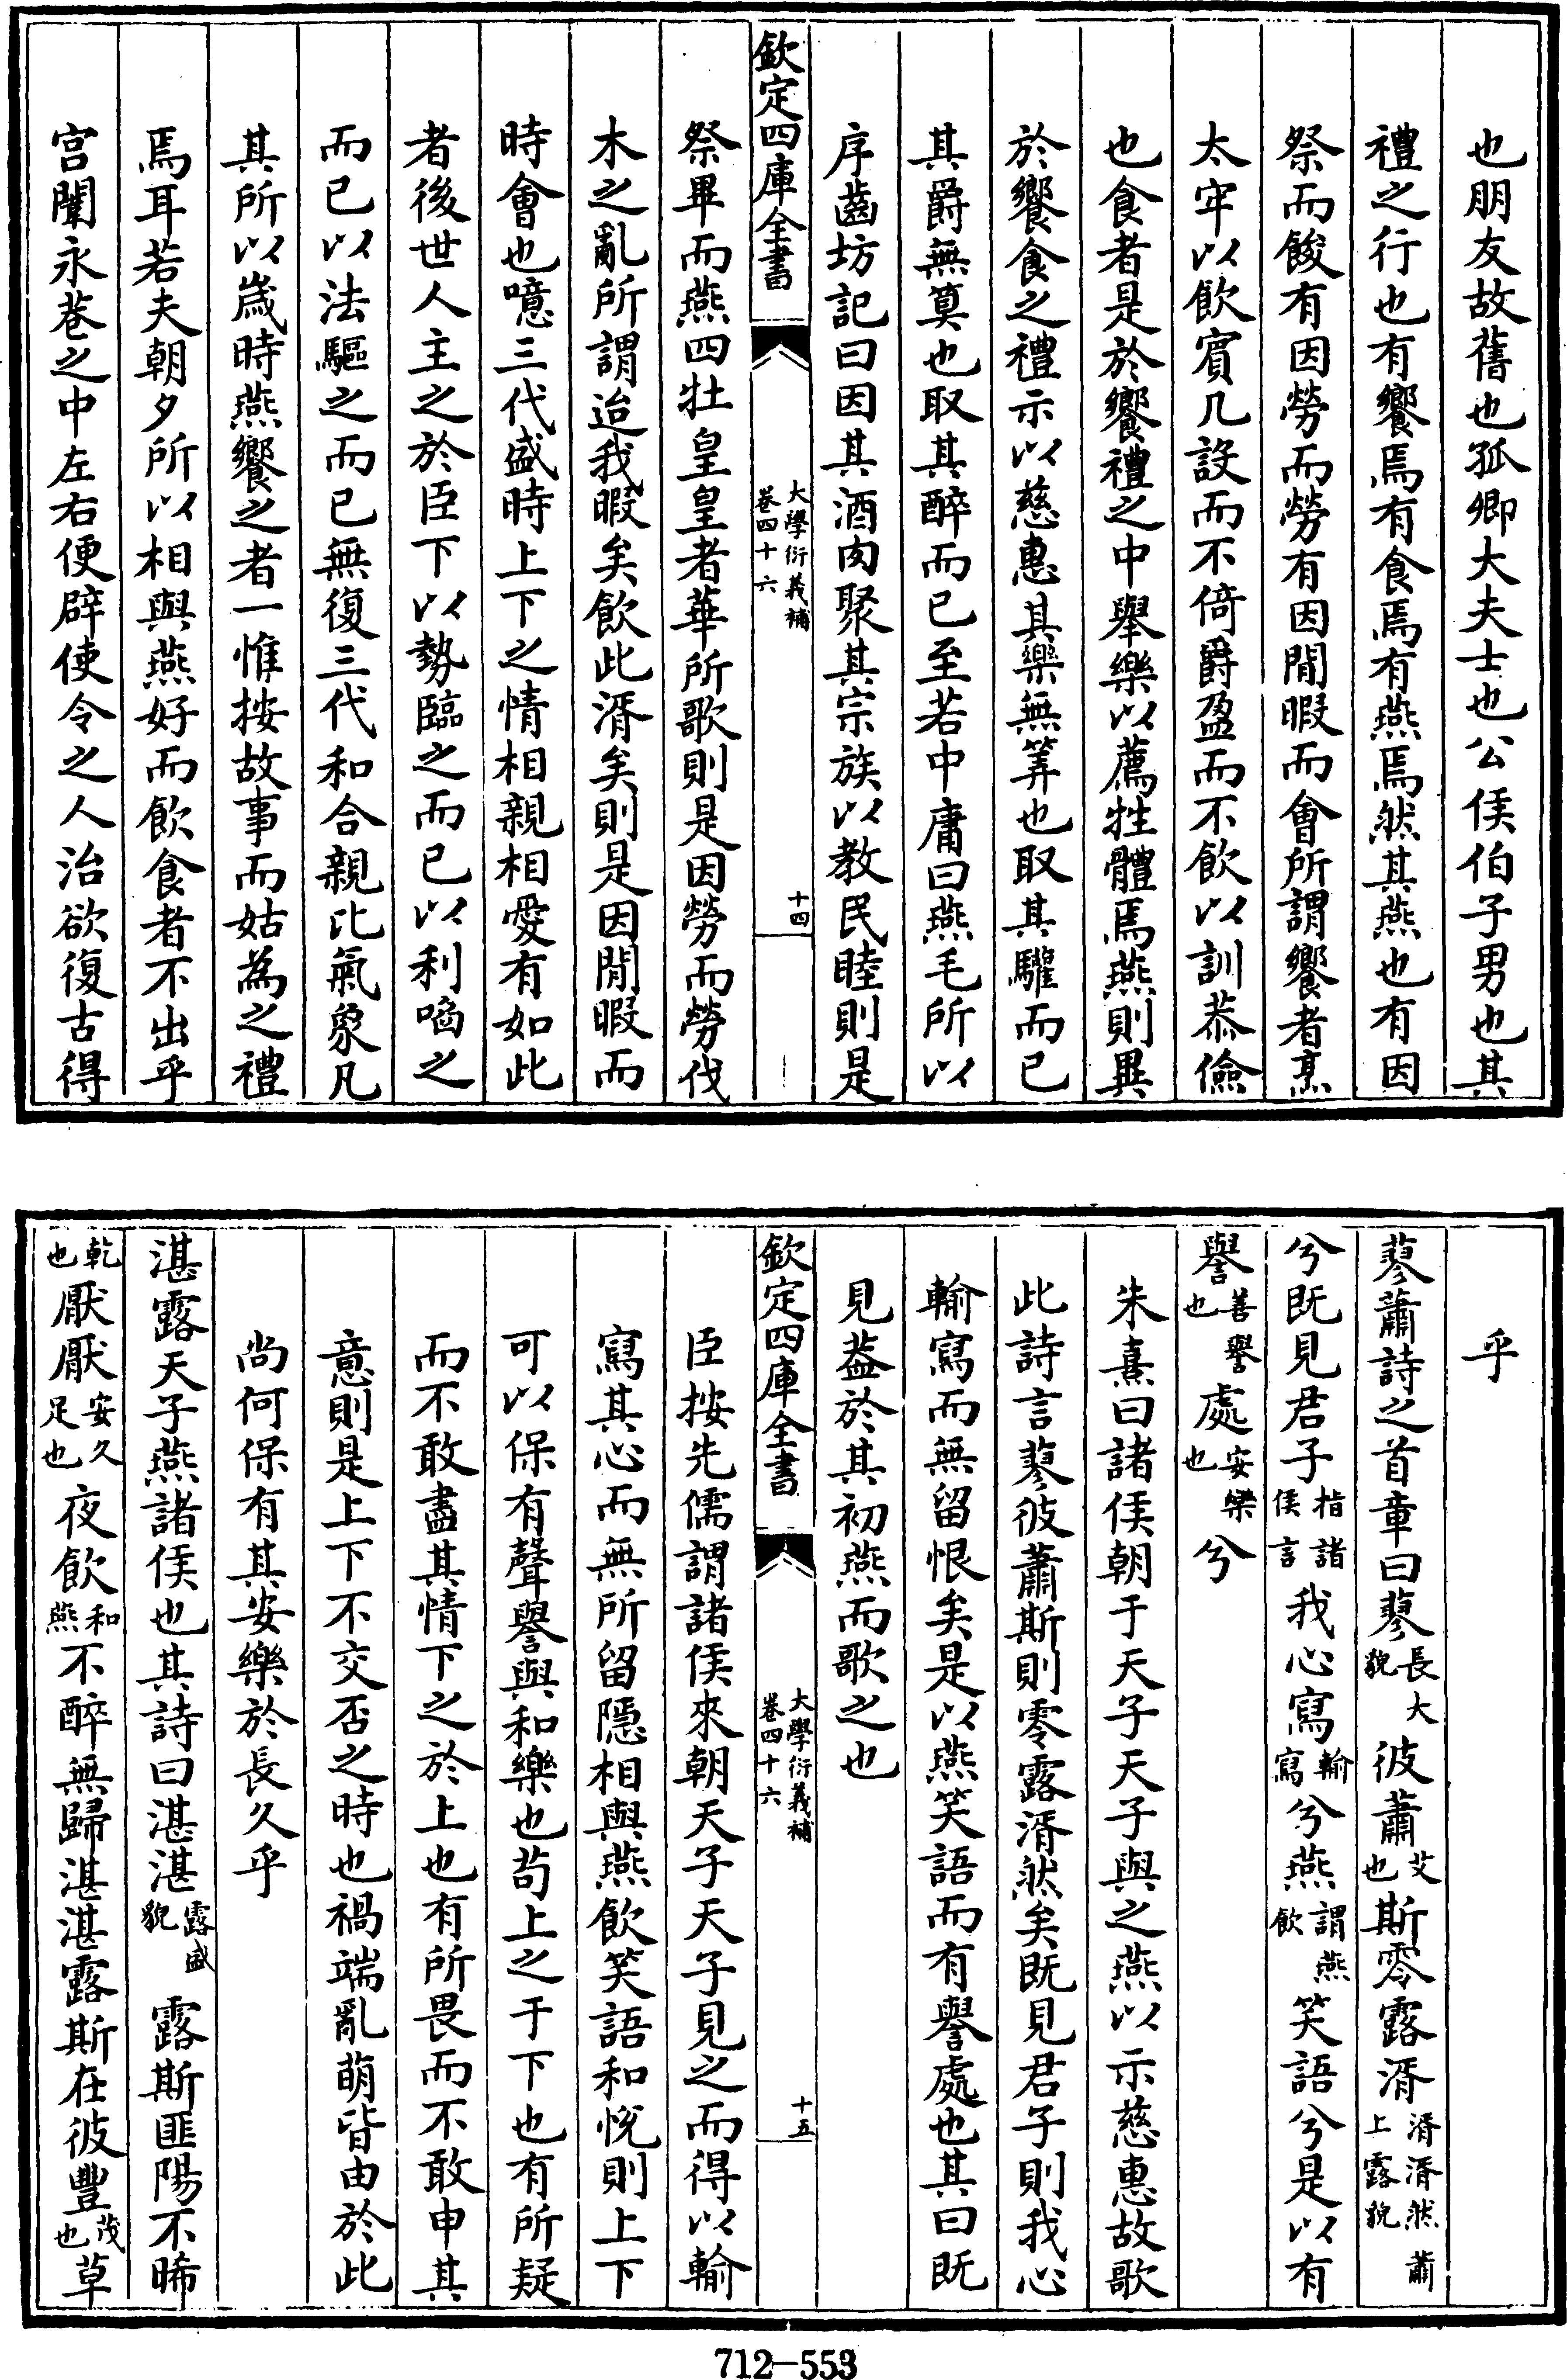 也朋友故舊也孤卿大夫士也公侯伯子男也其
禮之行也有饗焉有食焉有燕焉然其燕也有因
祭而餕有因勞而勞有因閒暇而會所謂饗者烹
太牢以飲賓几設而不倚爵盈而不飲以訓恭儉
也食者是於饗禮之中舉樂以薦牲體焉燕則異
於饗食之禮示以慈惠其樂無筭也取其驩而已
其爵無筭也取其醉而已至若中庸曰燕毛所以
序齒坊記曰因其酒肉聚其宗族以教民睦則是
欽定四庫全書 大學衍義補 卷四十六 十四
祭畢而燕四牡皇皇者華所歌則是因勞而勞伐
木之亂所謂迨我暇矣飲此湑矣則是因閒暇而
時會也噫三代盛時上下之情相親相愛有如此
者後世人主之於臣下以勢臨之而已以利啗之
而已以法驅之而已無復三代和合親比氣象凡
其所以歲時燕饗之者一惟按故事而姑為之禮
焉耳若夫朝夕所以相與燕好而飲食者不出乎
宮闈永巷之中左右便辟使令之人治欲復古得
乎
蓼蕭詩之首章曰蓼長大貌彼蕭艾也斯零露湑湑湑然蕭上露貌
兮既見君子指諸侯言我心寫輸寫兮燕謂燕飲笑語兮是以有
譽善譽也處安樂也兮
朱熹曰諸侯朝于天子天子與之燕以示慈惠故歌
此詩言蓼彼蕭斯則零露湑然矣既見君子則我心
輸寫而無留恨矣是以燕笑語而有譽處也其曰既
見蓋於其初燕而歌之也
欽定四庫全書 大學衍義補 卷四十六 十五
臣按先儒謂諸侯來朝天子天子見之而得以輸
寫其心而無所留隱相與燕飲笑語和悅則上下
可以保有聲譽與和樂也苟上之于下也有所疑
而不敢盡其情下之於上也有所畏而不敢申其
意則是上下不交否之時也禍端亂萌皆由於此
尚何保有其安樂於長久乎
湛露天子燕諸侯也其詩曰湛湛露盛貌露斯匪陽不晞
乾也厭厭安久足也夜飲和燕不醉無歸湛湛露斯在彼豐茂也草
712-553